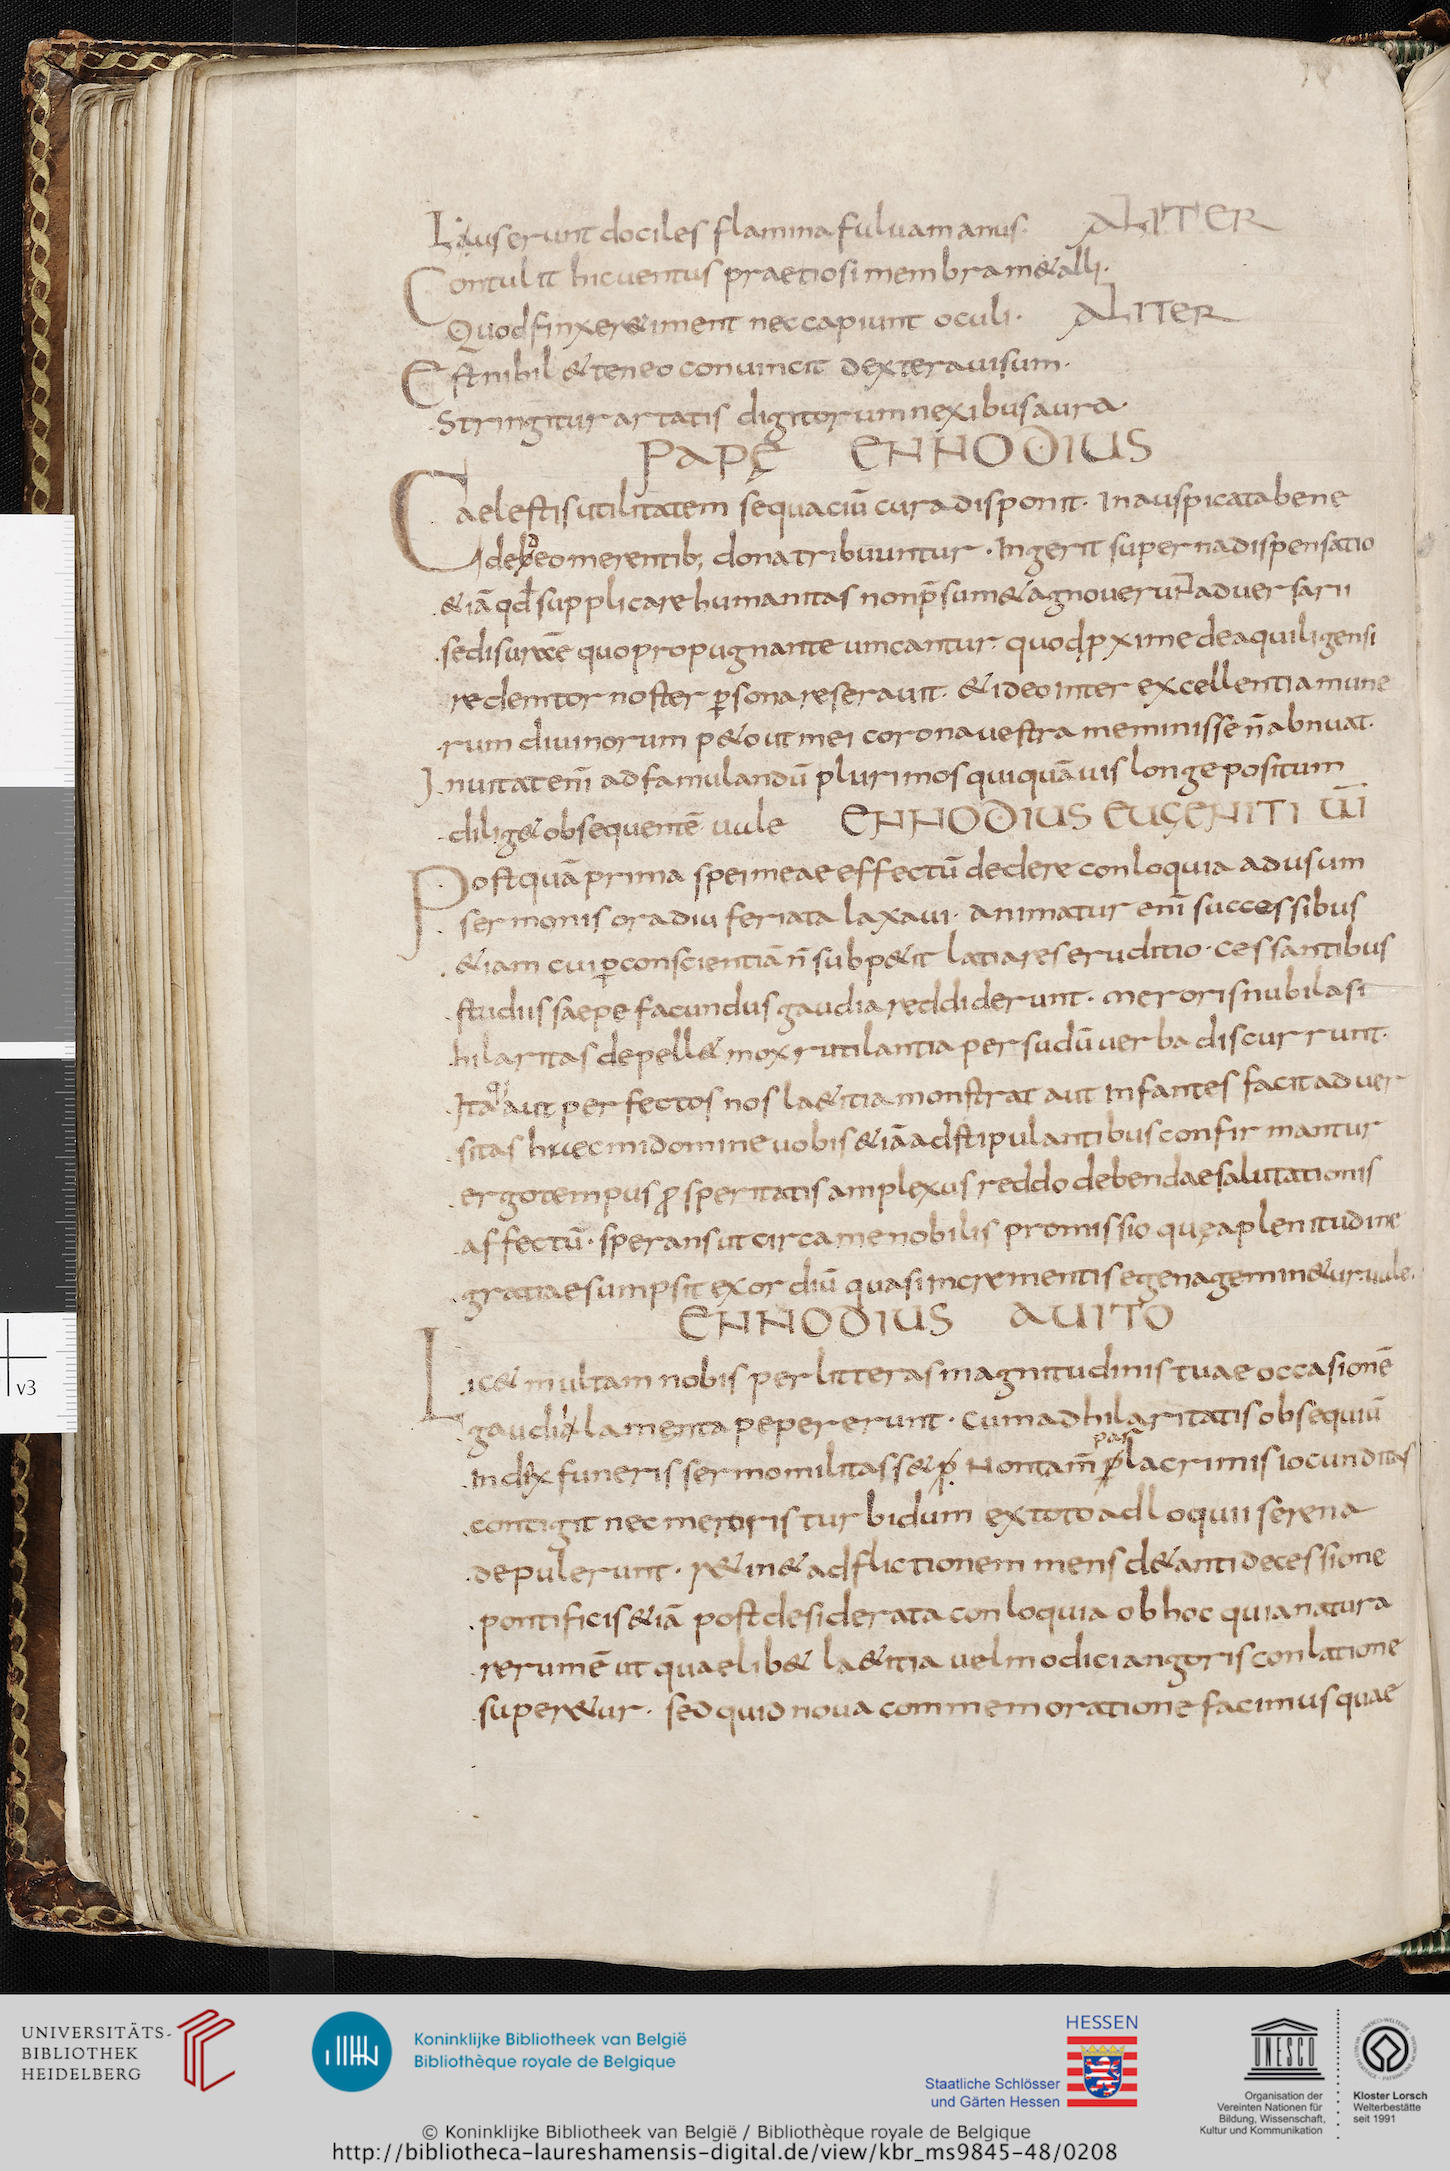 Lauserunt dociles flamina fuluam anus. ALITER
Contulit hic uentus praetiosi membra m&alli.
Quod finxer& iment nec capiunt oculi. ALITER
Est nihil & teneo conuincit dextera uisum.
Stringitur artatis digitorum nexibus aura.
PAPĘ ENNODIUS
Caelestis utilitatem sequaciū cura disponit. In auspicata bene
deo merentib; dona tribuuntur. Ingerit superna dispensatio
&iā qđ supplicare humanitas non p̄sum& agnouerunt aduersarii
sedis uræ quo propugnante uincantur. quod pxime de aquiligensi
redemtor noster psona reserauit. & ideo inter excellentia mune
rum diuinorum p&o ut mei corona uestra meminisse n̄ abnuat.
Inuitat eni ad famulandū plurimos qui quāuis longe positum
dilig& obsequentē uale ENNODIUS EUGENITI UI
Postquā prima spei meae effectū dedere conloquia ad usum
sermonis ora diu feriata laxaui. animatur enī successibus
&iam cui p conscientiā n̄ subp&it latiaris eruditio. cessantibus
studiis saepe facundus gaudia reddiderunt. meroris nubila si
hilaritas depell& mox rutilantia per sudū uerba discurrunt.
Ita aut perfectos nos la&itia monstrat aut infantes facit aduer
sitas haec mi domine uobis &iā adstipulantibus confirmantur
ergo tempus psperitatis amplexus reddo debendae salutationis
affectū. sperans ut circa me nobilis promissio quę a plenitudine
gratiae sumpsit exordiū quasi incrementis egena gemin&ur. uale.
ENNODIUS AUITO
Lic& multam nobis per litteras magnitudinis tuae occasionē
gaudii lamenta pepererunt. cum ad hilaritatis obsequiū
index funeris sermo militass& p. Non tam̄ par lacrimis iocunditas
contigit nec meroris turbidum ex toto adloquii serena
depulerunt. r&in& adflictionem mens d& anti decessione
pontificis &iā post desiderata conloquia ob hoc quia natura
rerum ē ut quaelib& la&itia uel modici angoris conlatione
super&ur. sed quid noua commemoratione facimus quae
v3
UNIVERSITÄTS-
BIBLIOTHEK
HEIDELBERG
Koninklijke Bibliotheek van België
Bibliothèque royale de Belgique
HESSEN
Staatliche Schlösser
und Gärten Hessen
UNESCO
Organisation der
Vereinten Nationen für
Bildung, Wissenschaft,
Kultur und Kommunikation
Kloster Lorsch
Welterbestätte
seit 1991
© Koninklijke Bibliotheek van België / Bibliothèque royale de Belgique
http://bibliotheca-laureshamensis-digital.de/view/kbr_ms9845-48/0208